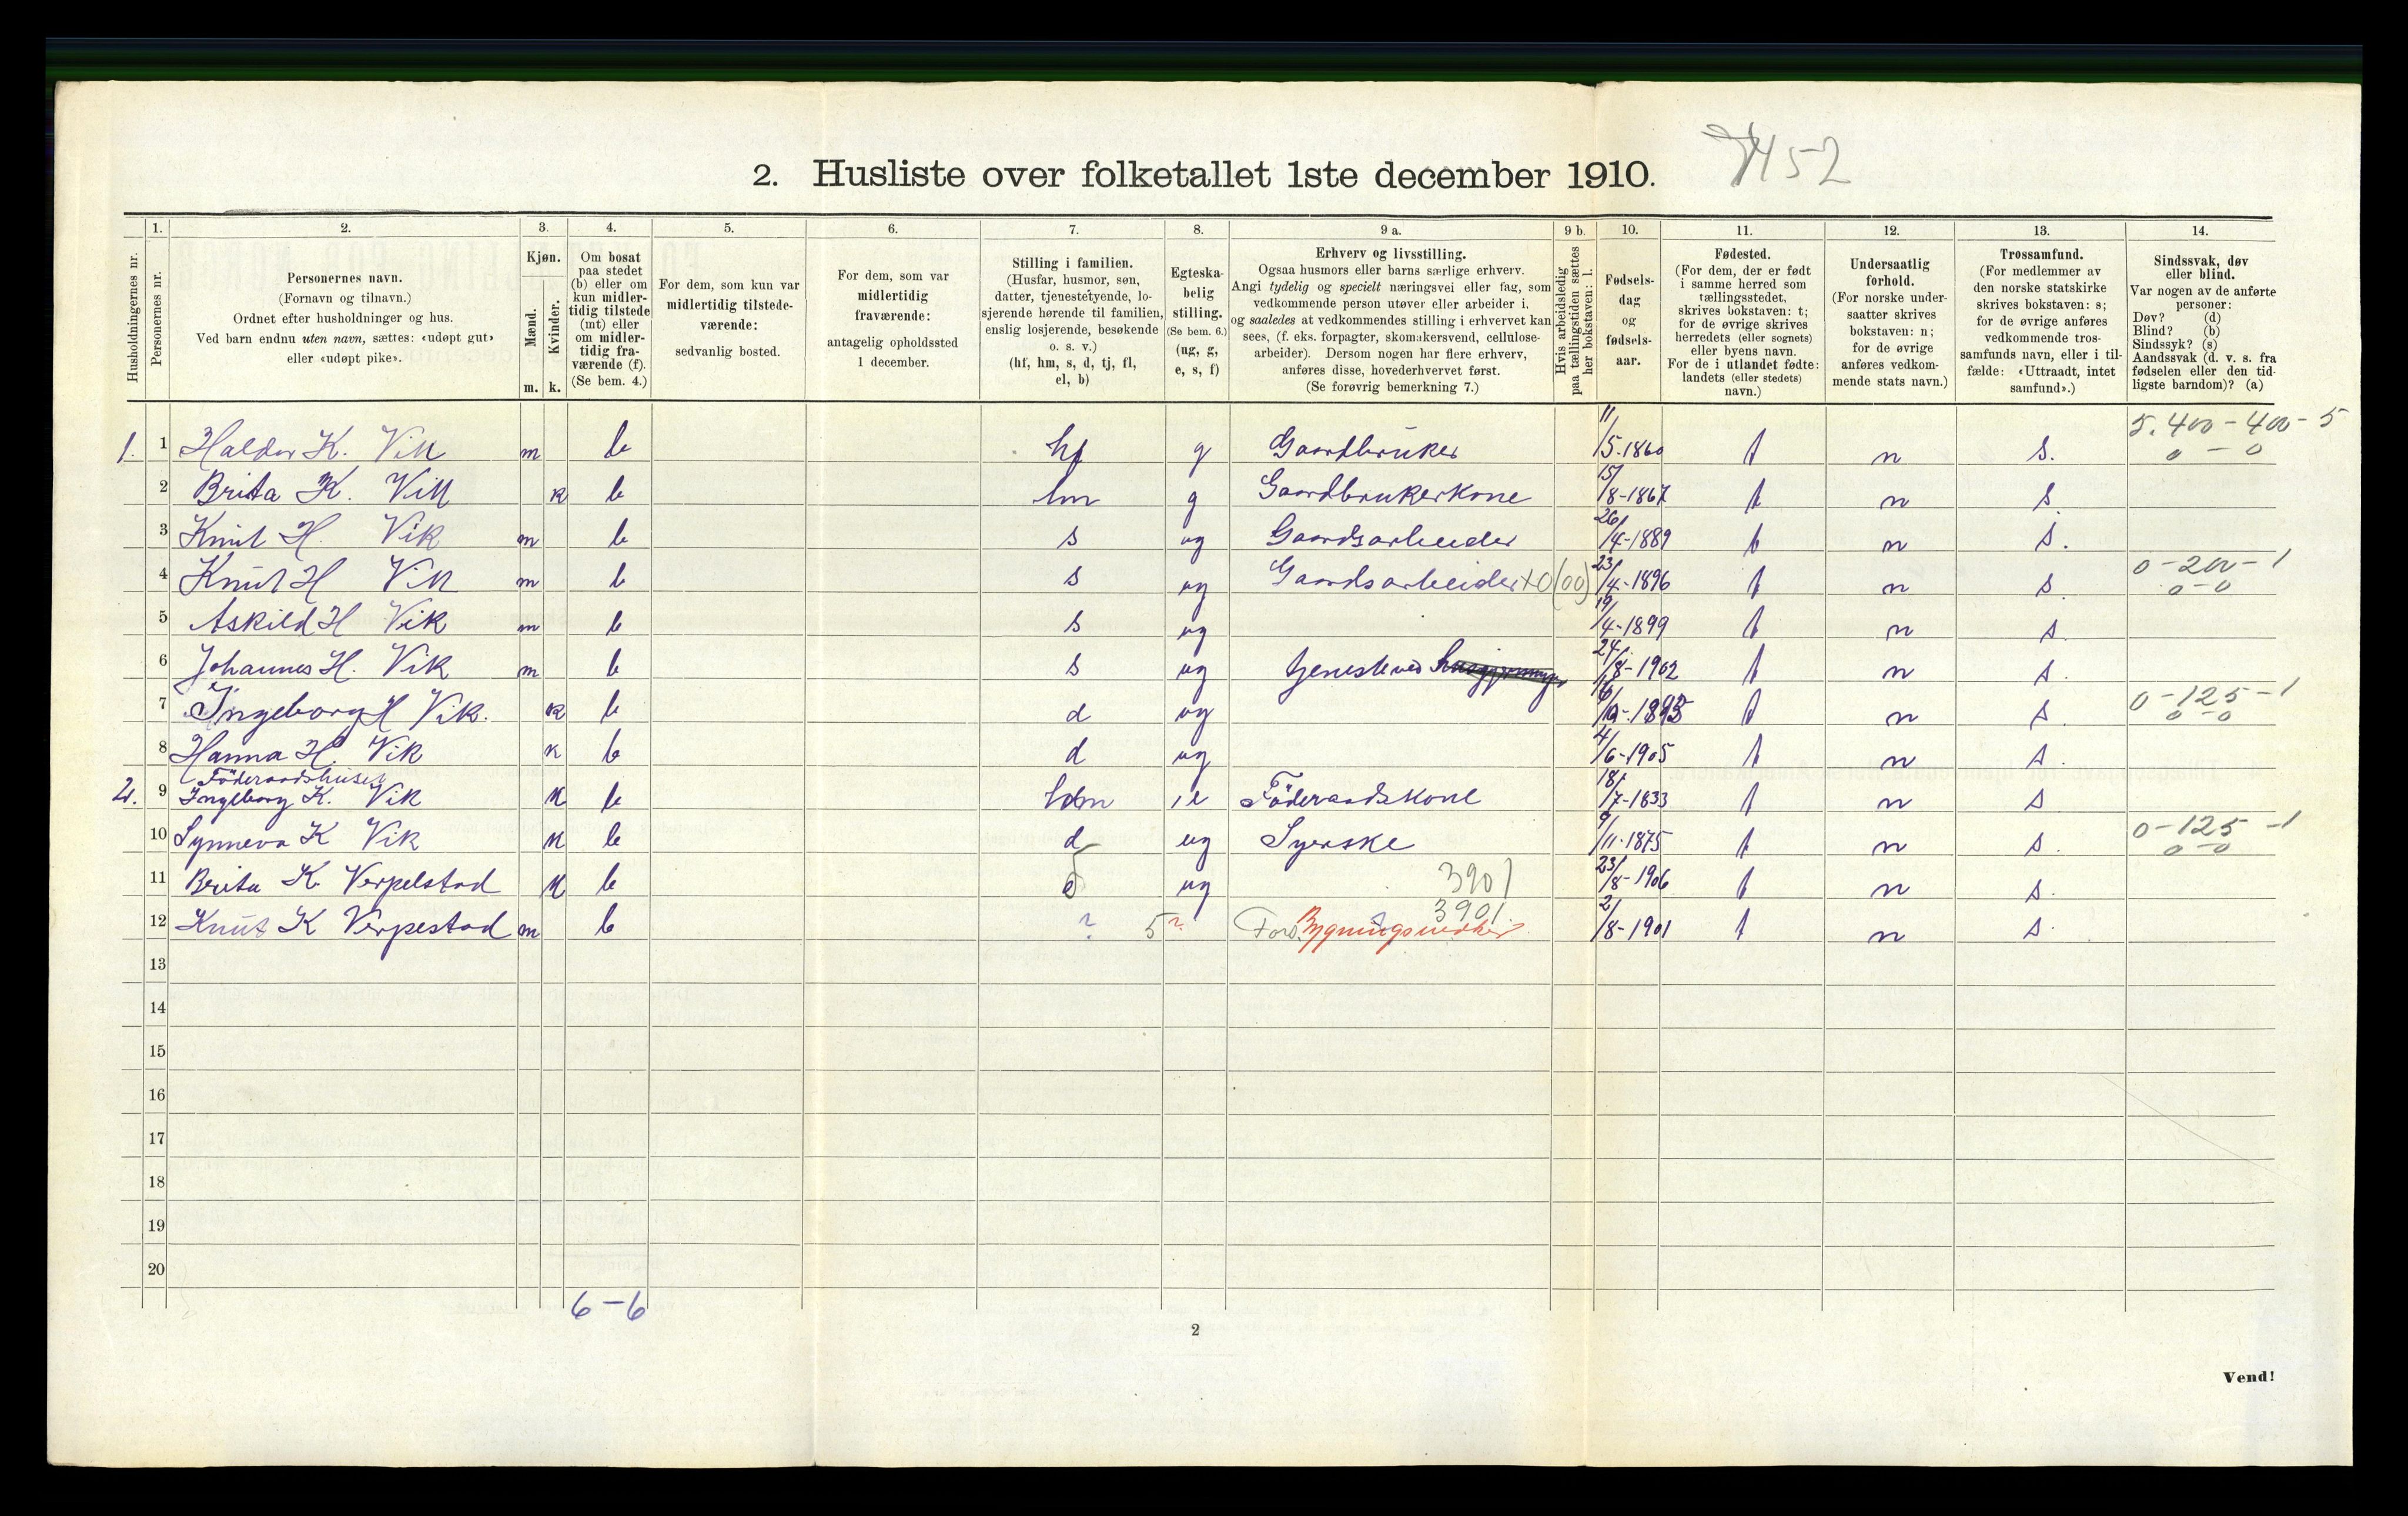 7452
2. Husliste over folketallet 1ste december 1910.
Husholdningernes nr.
1.
Personernes nr.
2.
Personernes navn.
(Fornavn og tilnavn.)
Ordnet efter husholdninger og hus.
Ved barn endnu uten navn, sættes: «udøpt gut»
eller «udøpt pike».
3.
Kjøn.
Mænd.
Kvinder.
m. k.
4.
Om bosat
paa stedet
(b) eller om
kun midler-
tidig tilstede
(mt) eller
om midler-
tidig fra-
værende (f).
(Se bem. 4.)
5.
For dem, som kun var
midlertidig tilstede-
værende:
sedvanlig bosted.
6.
For dem, som var
midlertidig
fraværende:
antagelig opholdssted
1 december.
7.
Stilling i familien.
(Husfar, husmor, søn,
datter, tjenestetyende, lo-
sjerende hørende til familien,
enslig losjerende, besøkende
o. s. v.)
(hf, hm, s, d, tj, fl,
el, b)
8.
Egteska-
belig
stilling.
(Se bem. 6.)
(ug, g,
e, s, f)
9 a.
Erhverv og livsstilling.
Ogsaa husmors eller barns særlige erhverv.
Angi tydelig og specielt næringsvei eller fag, som
vedkommende person utøver eller arbeider i,
og saaledes at vedkommendes stilling i erhvervet kan
sees, (f. eks. forpagter, skomakersvend, cellulose-
arbeider). Dersom nogen har flere erhverv,
anføres disse, hovederhvervet først.
(Se forøvrig bemerkning 7.)
9 b.
Hvis arbeidsledig
paa tællingstiden sættes
her bokstaven: l.
10.
Fødsels-
dag
og
fødsels-
aar.
11.
Fødested.
(For dem, der er født
i samme herred som
tællingsstedet,
skrives bokstaven: t;
for de øvrige skrives
herredets (eller sognets)
eller byens navn.
For de i utlandet fødte:
landets (eller stedets)
navn.)
12.
Undersaatlig
forhold.
(For norske under-
saatter skrives
bokstaven: n;
for de øvrige
anføres vedkom-
mende stats navn.)
13.
Trossamfund.
(For medlemmer av
den norske statskirke
skrives bokstaven: s;
for de øvrige anføres
vedkommende tros-
samfunds navn, eller i til-
fælde: «Uttraadt, intet
samfund».)
14.
Sindssvak, døv
eller blind.
Var nogen av de anførte
personer:
Døv? (d)
Blind? (b)
Sindssyk? (s)
Aandssvak (d. v. s. fra
fødselen eller den tid-
ligste barndom)? (a)
1. 1 Haldor K. Vik m b hf g Gaardbruker 11/5-1860 t n s. 5.400-400-5 0-0
2 Brita K. Vik k b hm g Gaardbrukerkone 15/8-1867 t n s.
3 Knut H. Vik m b s ug Gaardsarbeider 26/4-1889 t n s.
4 Knut H Vik m b s ug Gaardsarbeider +0(00) 23/4-1896 t n s 0-200-1 0-0
5 Askild H Vik m b s ug 19/4-1899 t n s.
6 Johannes H. Vik m b s ug tjeneste ved 24/8-1902 t n s.
7 Ingeborg H Vik. k b d ug t n s. 0-125-1 0-0
8 Hanna H. Vik k b d ug 4/6-1905 t n s.
Föderaadshuset
2. 9 Ingeborg K. Vik k b e Föderaadskone 18/7-1833 t n s
10 Synneva K Vik k b d ug Syerske 9/11-1875 t n s. 0-125-1 0-0
11 Brita K. Verpelstad k b ug 3901 23/8-1906 t n s.
12 Knut K Verpestad m b ? 5 ? 3901. Fors. Bygningssnedker 2/8-1901 t n s.
13
14
15
16
17
18
19
20
6-6
2
Vend!